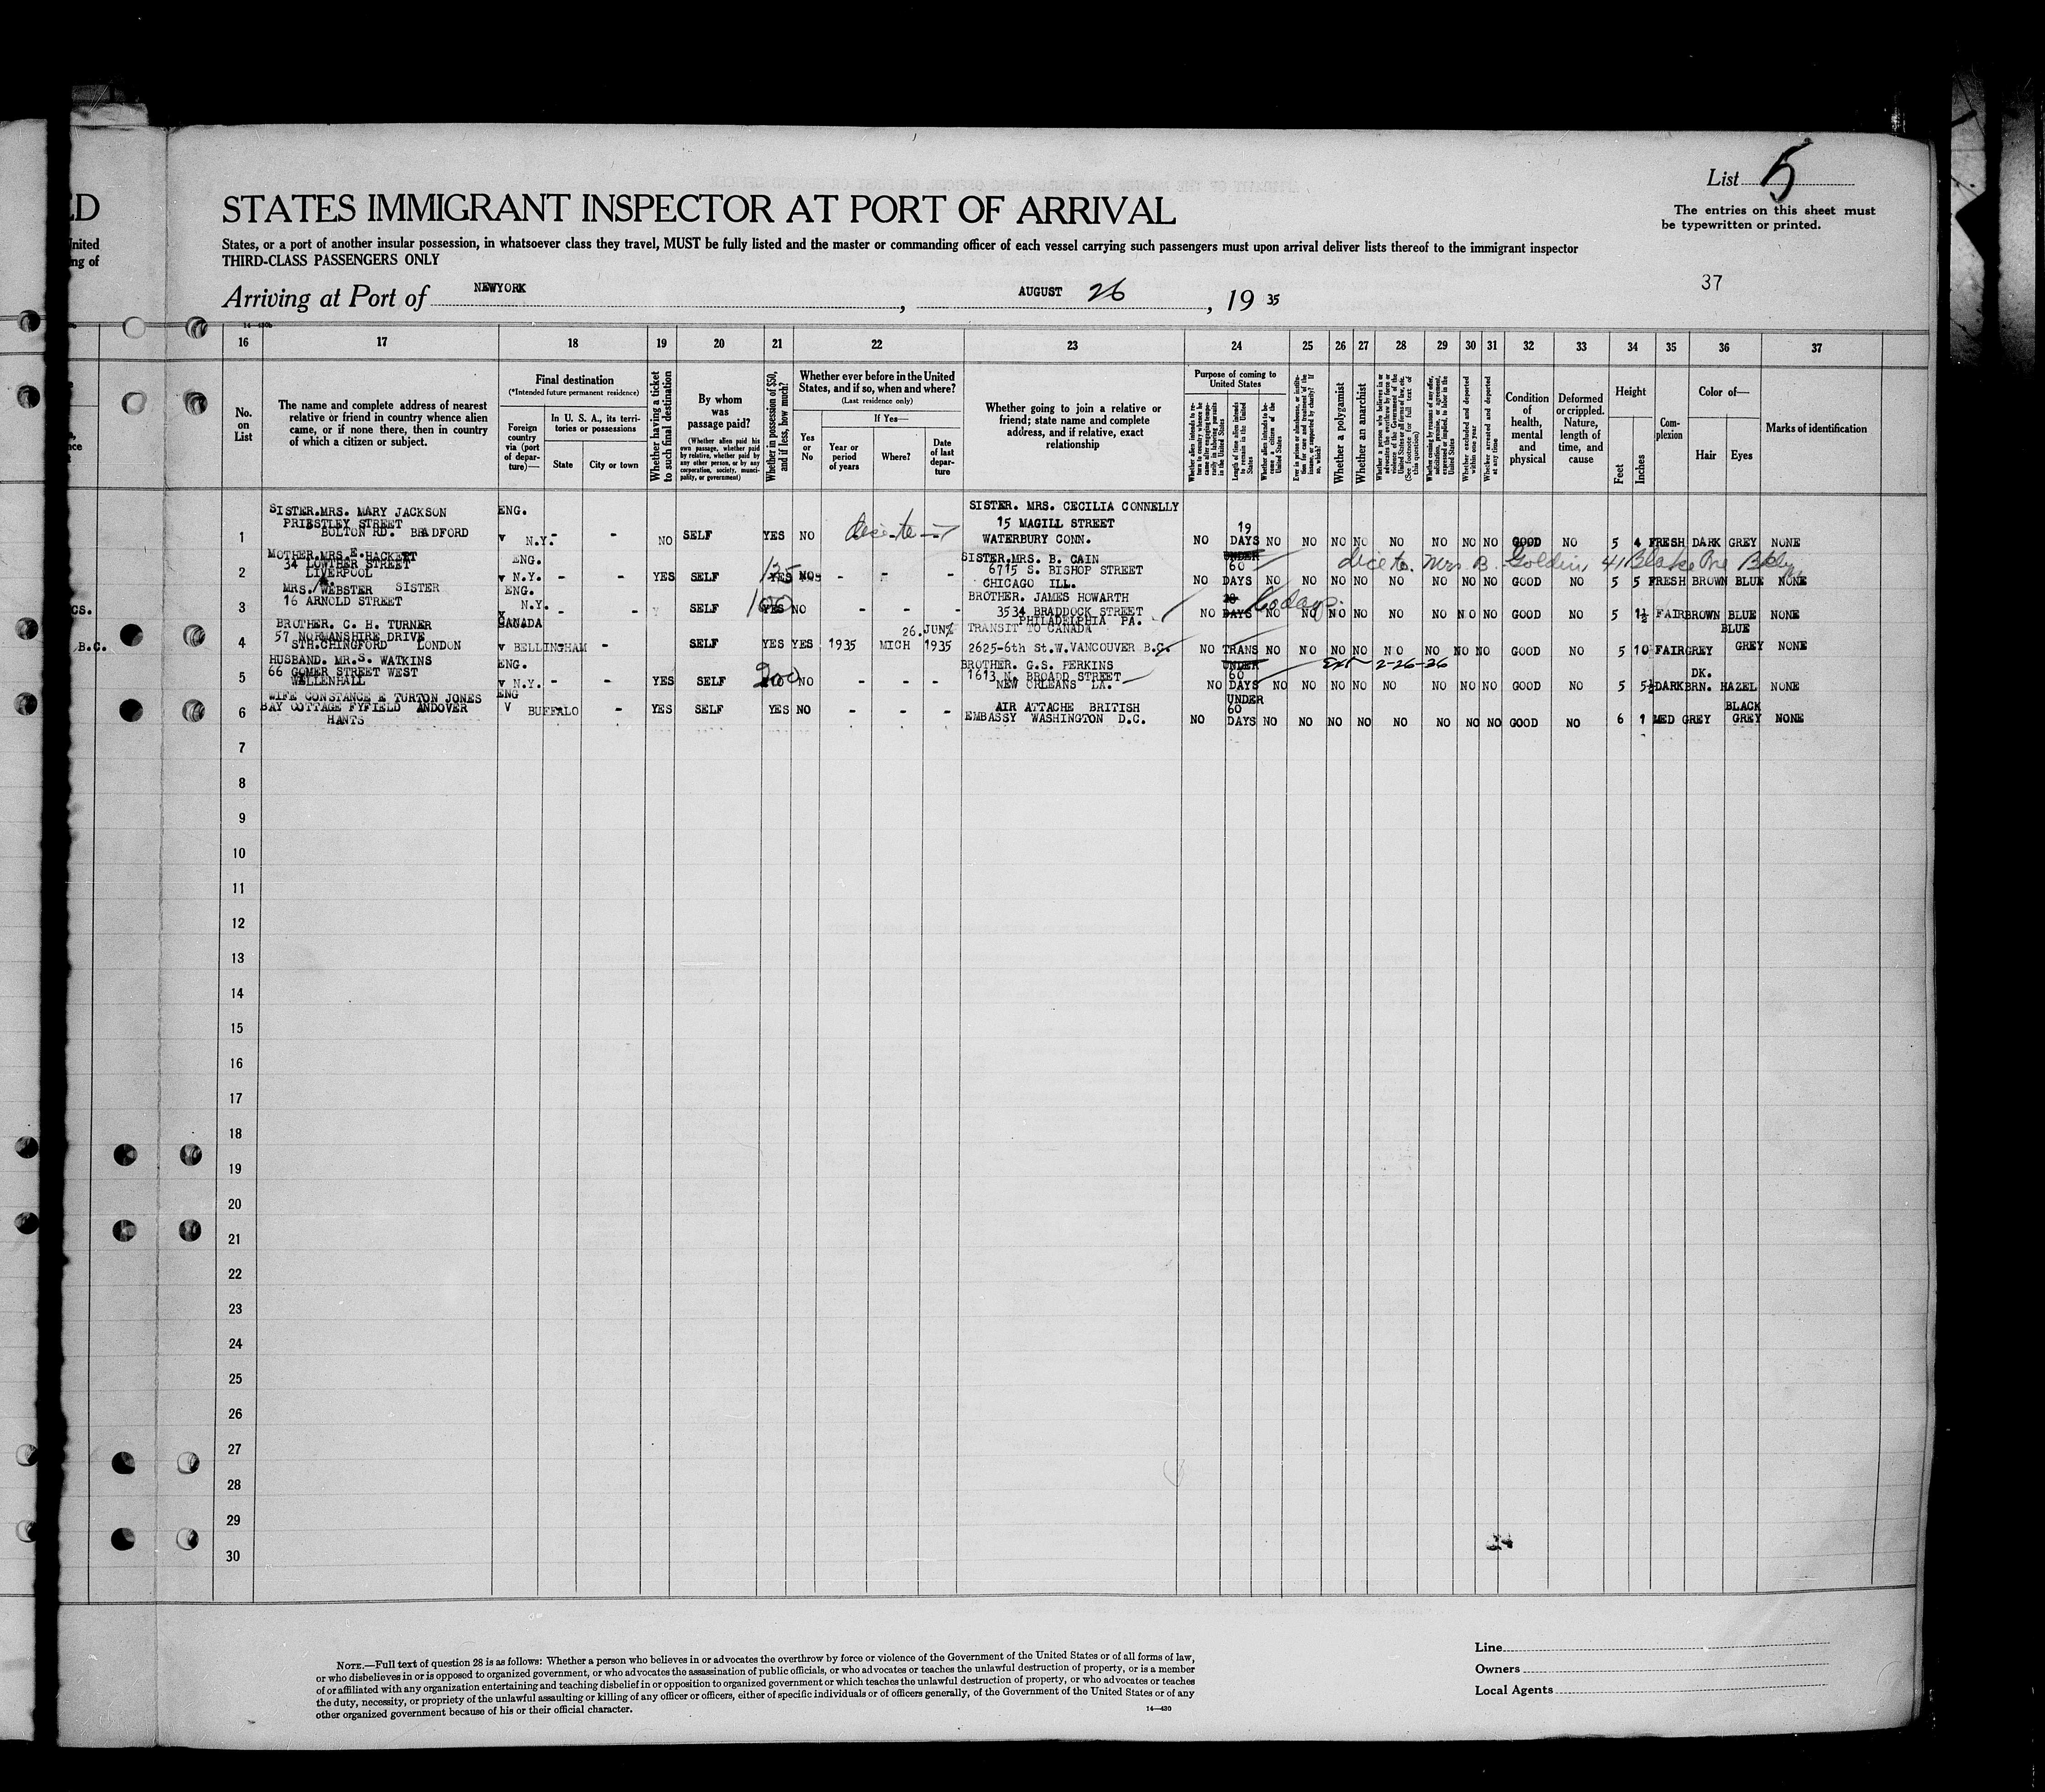 List 5
The entries on this sheet must
be typewritten or printed.
ED
STATES IMMIGRANT INSPECTOR AT PORT OF ARRIVAL
United
ng of
States, or a port of another insular possession, in whatsoever class they travel, MUST be fully listed and the master or commanding officer of each vessel carrying such passengers must upon arrival deliver lists thereof to the immigrant inspector
THIRD-CLASS PASSENGERS ONLY
37
Arriving at Port of NEWYORK, AUGUST 26, 19 35
16 17 18 19 20 21 22 23 24 25 26 27 28 29 30 31 32 33 34 35 36 37
No. on List
The name and complete address of nearest
relative or friend in country whence alien
came, or if none there, then in country
of which a citizen or subject.
Final destination
(*Intended future permanent residence)
Foreign country via (port of departure)—
In U. S. A., its territories or possessions
State
City or town
Whether having a ticket to such final destination
By whom was passage paid?
(Whether alien paid his own passage, whether paid by relative, whether paid by any other person, or by any corporation, society, municipality, or government)
Whether in possession of $50, and if less, how much?
Whether ever before in the United
States, and if so, when and where?
(Last residence only)
Yes or No
If Yes—
Year or period of years
Where?
Date of last departure
Whether going to join a relative or
friend; state name and complete
address, and if relative, exact
relationship
Purpose of coming to United States
Length of time alien intends to remain in the United States
Whether alien intends to become a citizen of the United States
Whether a polygamist
Whether an anarchist
Whether excluded and deported within one year
Whether arrested and deported at any time
Condition of health, mental and physical
Deformed or crippled. Nature, length of time, and cause
Height
Feet
Inches
Complexion
Color of—
Hair
Eyes
Marks of identification
SISTER.MRS. MARY JACKSON ENG. SISTER. MRS. CECILIA CONNELLY
PRIESTLEY STREET 15 MAGILL STREET 19
1 BOLTON RD. BRADFORD v N.Y. - - NO SELF YES NO WATERBURY CONN. NO DAYS NO NO NO NO NO NO NO NO GOOD NO 5 4 FRESH DARK GREY NONE
MOTHER.MRS.E.HACKETT ENG. SISTER.MRS. B. CAIN UNDER
34 LOWTHER STREET 6715 S. BISHOP STREET 60 Mrs B. Goldin, 41 Blake Ave Bklyn
2 LIVERPOOL v N.Y. - - YES SELF 125 YES NO - - - CHICAGO ILL. NO DAYS NO NO NO NO NO NO NO NO GOOD NO 5 5 FRESH BROWN BLUE NONE
MRS. WEBSTER SISTER ENG. BROTHER. JAMES HOWARTH 28 60 days.
3 16 ARNOLD STREET N.Y. - - SELF 100 YES NO - - - 3534 BRADDOCK STREET NO DAYS NO NO NO NO NO NO NO NO GOOD NO 5 1½ FAIR BROWN BLUE NONE
PHILADELPHIA PA.
BROTHER. C. H. TURNER CANADA 26.JUNE TRANSIT TO CANADA BLUE
57 NORMANSHIRE DRIVE
B.C. 4 STH.CHINGFORD LONDON v BELLINGHAM - SELF YES YES 1935 MICH 1935 2625-6th St.W.VANCOUVER B.C. NO TRANS NO NO NO NO NO NO NO NO GOOD NO 5 10 FAIR GREY GREY NONE
HUSBAND. MR.S. WATKINS ENG. BROTHER. G.S. PERKINS UNDER Ext 2-26-36
66 GOMER STREET WEST 1613 N. BROAD STREET 60 DK.
5 WILLENHALL v N.Y. - - YES SELF 200 NO - - - NEW ORLEANS LA. NO DAYS NO NO NO NO NO NO NO NO GOOD NO 5 5½ DARK BRN. HAZEL NONE
WIFE CONSTANCE E TURTON JONES ENG UNDER
6 BAY COTTAGE FYFIELD ANDOVER V BUFFALO - YES SELF YES NO - - - AIR ATTACHE BRITISH 60 BLACK
HANTS EMBASSY WASHINGTON D.C. NO DAYS NO NO NO NO NO NO NO NO GOOD NO 6 1 MED GREY GREY NONE
7
8
9
10
11
12
13
14
15
16
17
18
19
20
21
22
23
24
25
26
27
28
29
30
Line
Owners
Local Agents
NOTE.—Full text of question 28 is as follows: Whether a person who believes in or advocates the overthrow by force or violence of the Government of the United States or of all forms of law,
or who disbelieves in or is opposed to organized government, or who advocates the assassination of public officials, or who advocates or teaches the unlawful destruction of property, or is a member
of or affiliated with any organization entertaining and teaching disbelief in or opposition to organized government or which teaches the unlawful destruction of property, or who advocates or teaches
the duty, necessity, or propriety of the unlawful assaulting or killing of any officer or officers, either of specific individuals or of officers generally, of the Government of the United States or of any
other organized government because of his or their official character.
14—430